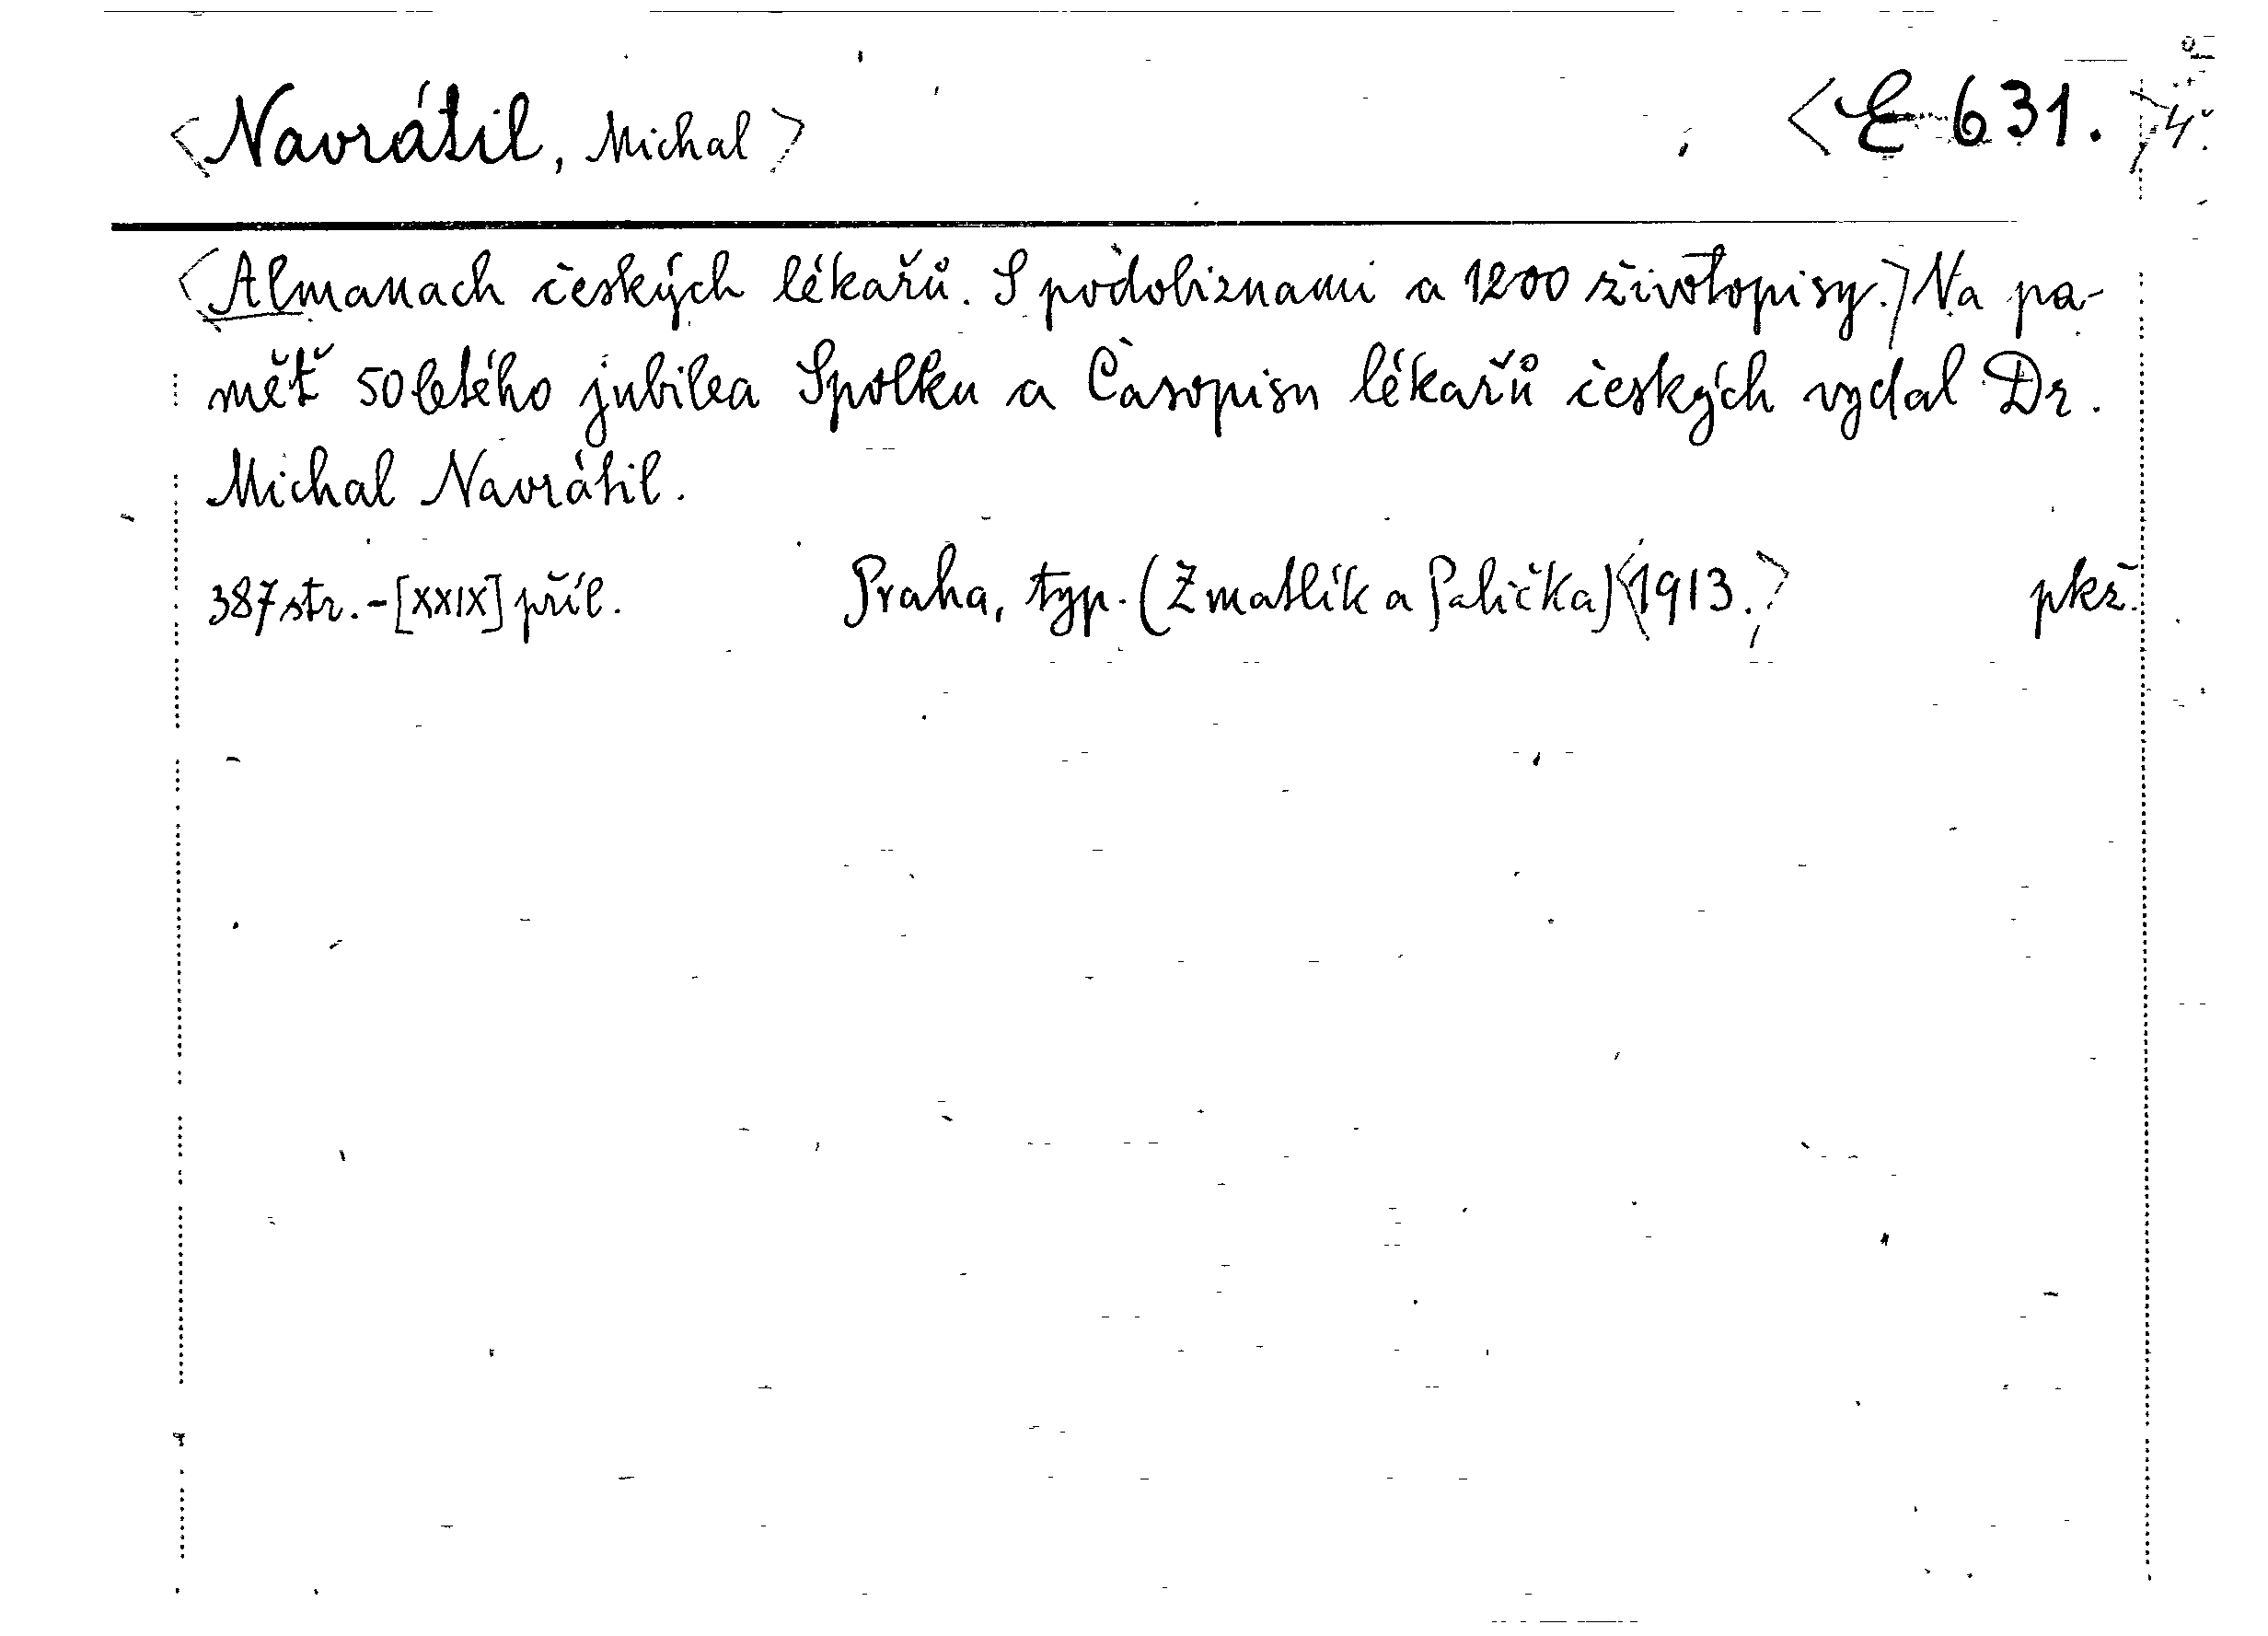 <Navrátil, Michal> <E 631.> 4°.
<Almanach českých lékařů. S podobiznami a 1200 životopisy.> Na pa-
mět 50letého jubilea Spolku a Časopisu lékařů českých vydal Dr.
Michal Navrátil.
387 str. - [XXIX] příl. Praha, typ. (Zmatlík a Palička) <1913.> pkž.